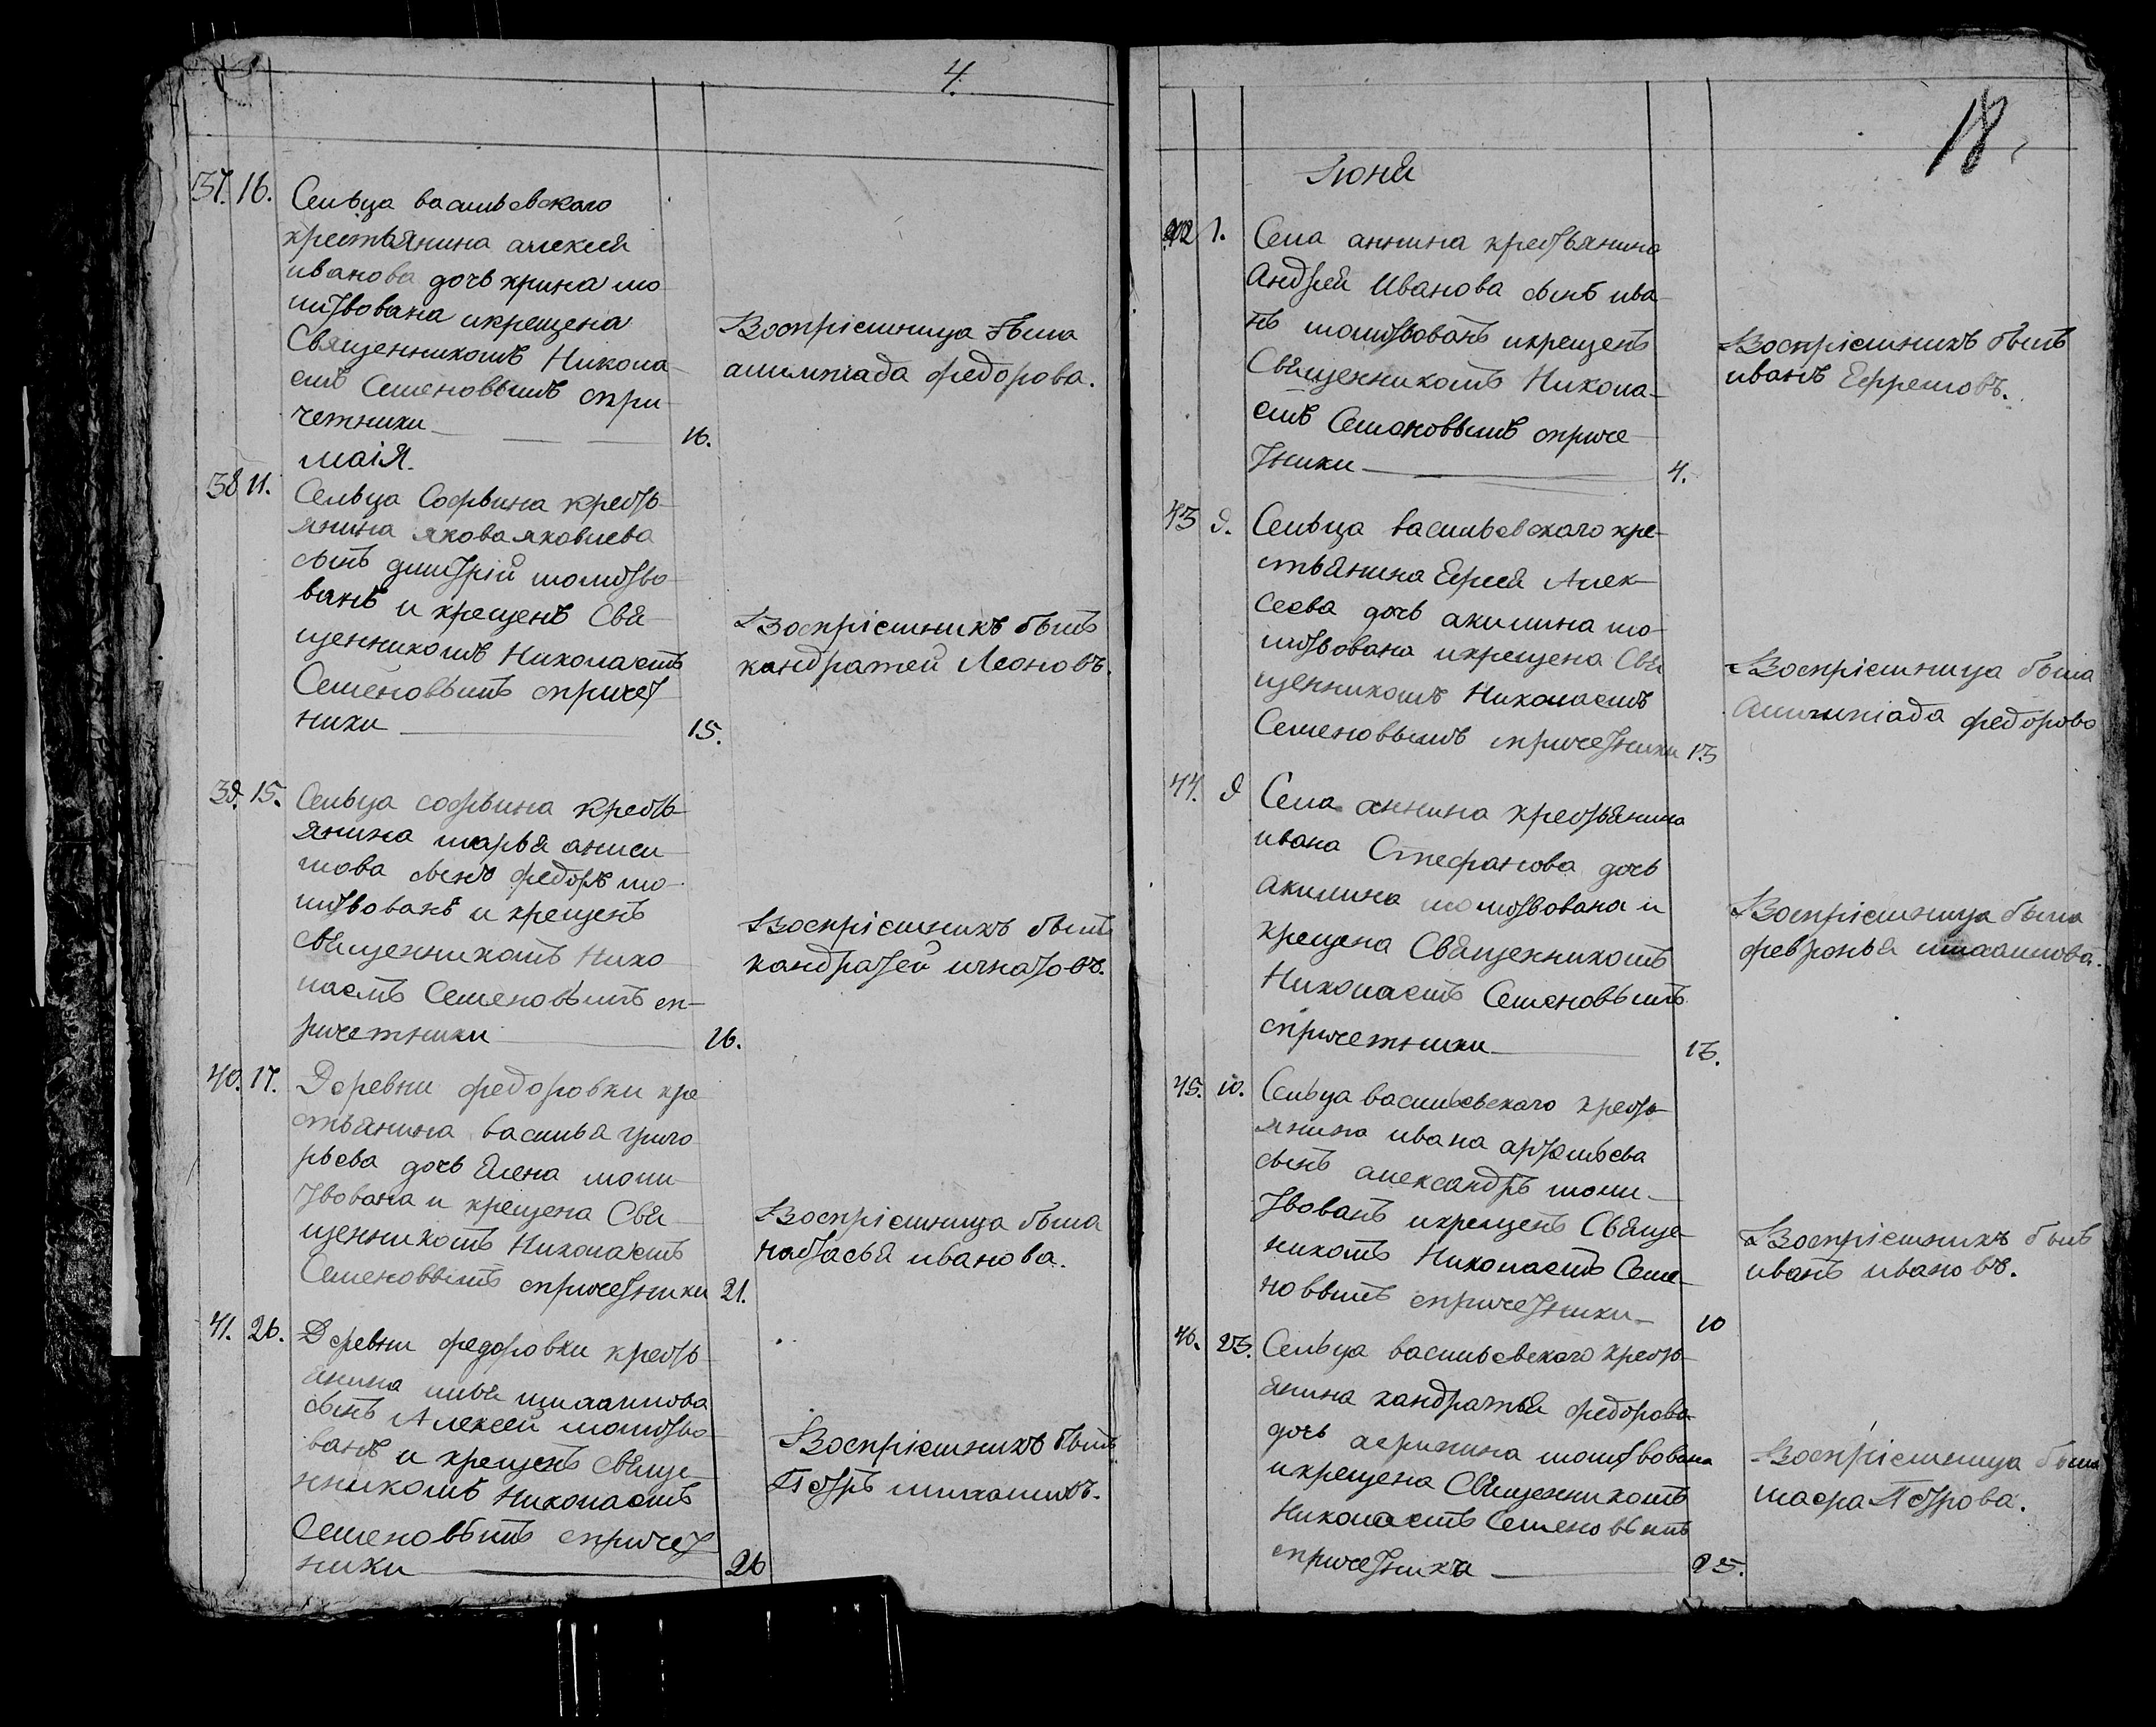 4.
37. 16. Сельца васильевскаго
крестьянина алексея
иванова дочь ирина мо
литвована икрещена
Священникомъ Никола
емъ Семеновымъ спри
четники 16.
Воспріемница была
алимпіада федорова.
маія.
38 11. Сельца Софьина кресть
янина якова яковлева
сынъ димитрій молитво
ванъ и крещенъ Свя
щенникомъ Николаемъ
Семеновымъ спричет
ники 15.
Воспріемникъ былъ
кандратей Леоновъ.
39. 15. Сельца софьина кресть
янина марья аниси
мова сынъ федоръ мо
литвованъ и крещенъ
священникомъ Нико
лаемъ Семеновымъ сп
ричетники 16.
Воспріемникъ былъ
кандратей игнатовъ.
40. 17. Деревни федоровки кре
стьянина василья григо
рьева дочь Елена моли
твована и крещена Свя
щенникомъ Николаемъ
Семеновымъ спричетники 21.
Воспріемница была
настасья иванова.
41. 26. Деревни федоровки кресть
янина михаилова
сынъ Алексей молитво
ванъ и крещенъ свяще
нникомъ Николаемъ
Семеновымъ спричет
ники 26
Воспріемникъ былъ
Петръ михаиловъ.
18
Іюня
42 1. Села аннина крестьянина
Андрея Иванова сынъ ива
нъ молитвованъ икрещенъ
Священникомъ Никола
емъ Семеновымъ сприче
тники 4.
Воспріемникъ былъ
иванъ Ефремовъ.
43 9. Сельца васильевскаго кре
стьянина Ефрея Алек
сеева дочь акилина мо
литвована икрещена Свя
щенникомъ Николаемъ
Семеновымъ спричетники 13
Воспріемница была
Алимпіада федорова
44. 9 Села аннина крестьянина
ивана Стефанова дочь
акилина молитвована и
крещена Священникомъ
Николаемъ Семеновымъ
спричетники 13.
Воспріемница была
февронья михаилова.
45. 10. Сельца васильевскаго кресть
янина ивана артемьева
сынъ александръ моли
твованъ икрещенъ Свяще
никомъ Николаемъ Семе
новымъ спричетники 10
Воспріемникъ былъ
иванъ ивановъ.
46. 23. Сельца васильевскаго кресть
янина кандратья федорова
дочь агрипина молитвована
икрещена Священникомъ
Николаемъ Семеновымъ
спричетники 25.
Воспріемница была
мавра Петрова.